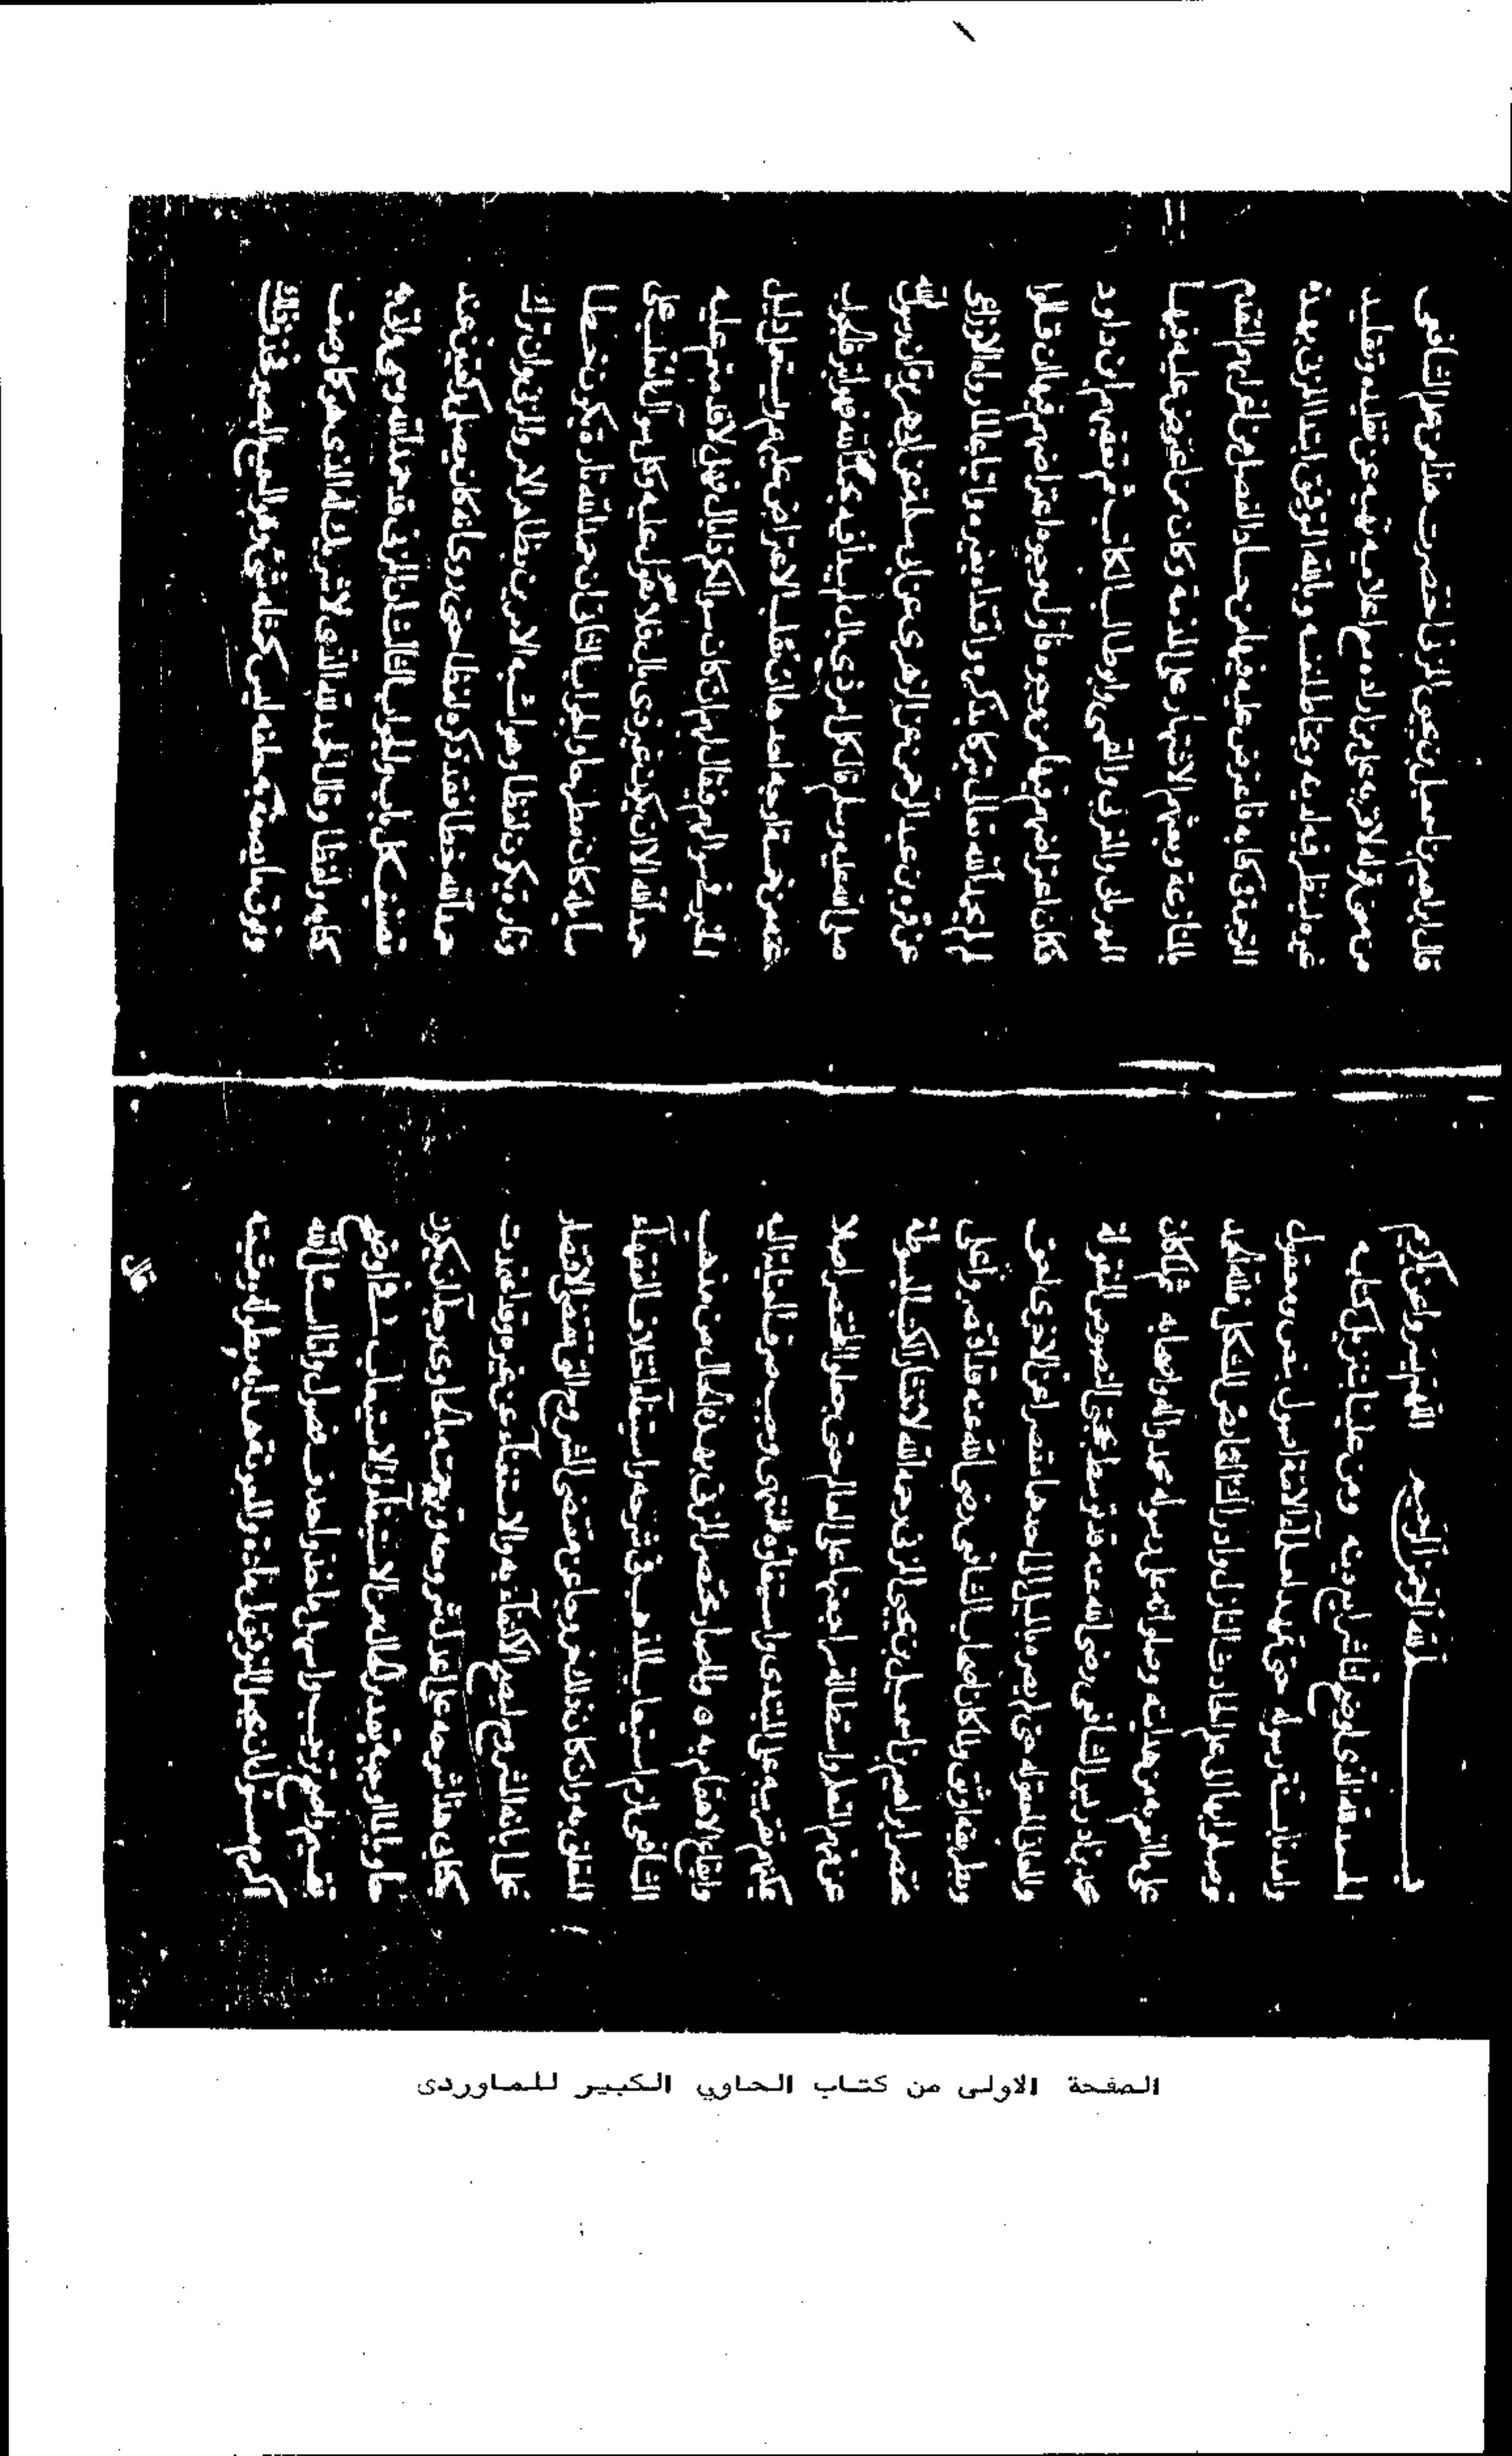 بسم الله الرحمن الرحيم اللهم يسر واعن ياكريم
الحمد لله الذي اوضح لنا شرايع دينه ومن علينا بتنزيل كتابه
وامدنا بسنة رسوله حتى تمهد لعلماء الامة اصول بنص ومعقول
توصلوا بها الى علم الحادث النازل وادراك الغامض المشكل فلله الحمد
على ما انعم به من هدايته وصلواته على رسوله محمد واله واصحابه ثم لما كان
محمد بن ادريس الشافعي رضي الله عنه قد توسط بحجتي النصوص المنقولة
والمعاني المعقولة حتى لم يصر بالميل الى احدهما مقصرا عن الاخرى احق
وبطريقه اوثق ولما كان اصحاب الشافعي رضي الله عنه قد اقتصروا على
مختصر ابراهيم بن اسمعيل بن يحيى المزني رحمه الله لانتشار الكتب المبسوطة
عن فهم المتعلم واستطالة مراجعتها على العالم حتى جعلوا المختصر اصلا
يمكنهم تقريبه على المبتدي واستيفاؤه للمنتهي وجب صرف العناية اليه
وايقاع الاهتمام به ولما صار مختصر المزني بهذه الحال من مذهب
الشافعي لزم استيعاب المذهب في شرحه واستيفاء اختلاف الفقهاء
المتعلق به وان كان ذلك خروجا عن مقتضى الشروح التي تقتضي الاقتصار
على ابانة المشروح ليصح الاكتفاء به والاستغناء عن غيره وقد اعتمدت
بكتابي هذا شرحه على اعدل شروحه وترجمته بالحاوي رجاء ان يكون
حاويا لما اوجبه تقدير الحال من الاستيفاء والاستيعاب في اوضح
تقسيم واصح ترتيب واسهل ماخذ واحذف فضول وانا اسال الله
اكرم مسئول ان يجعل التوفيق لي مادة والمعونة هداية بطوله ومشيته
قال
قال ابراهيم بن اسمعيل بن يحيى المزني اختصرت هذا من علم الشافعي
ومن معنى قوله لاقربه على من اراده مع اعلاميه نهيه عن تقليده وتقليد
غيره لينظر فيه لدينه ويحتاط لنفسه وبالله التوفيق ابتدا المزني بهذه
الترجمة في كتابه فاعترض عليه فيها من حساد الفضل من اغراهم التقدم
بالمنازعة وبعثهم الاشتهار على المذمة وكان ممن اعترض عليه فيها
النهرماني والمغربي والقهي وابو طالب الكاتب ثم تعقبهم ابن داود
فكان اعتراضهم فيها من وجوه فاول وجوه اعتراضهم فيها ان قالوا
لم لم يحمد الله تعالى تبركا بذكره واقتداء بغيره واتباعا لما رواه الاوزاعي
عن قرة بن عبد الرحمن عن الزهري عن ابي سلمة عن ابي هريرة ان رسول الله
صلى الله عليه وسلم قال كل امر ذي بال لم يبدا فيه بحمد الله فهو ابتر فالجواب
عنه من خمسة اوجه احدها ان تقلب الاعتراض عليهم وليستعمل دليل
الخبر في سوالهم فيقال لهم ان كان سوالكم ذا بال فهلا قدمتم عليه
حمد الله الا ان يكون غير ذي بال فلا معول عليه وكل سوال انقلب على
سايله كان مطرحا والجواب الثاني ان حمد الله تارة يكون خطا
وتارة يكون لفظا وهو اشبه الامرين بظاهر الامر والمزني وان ترك
حمد الله خطا فقد ذكره لفظا حتى روي انه كان يصلي ركعتين عند
تصنيف كل باب والجواب الثالث ان المزني قد حمد الله وروي ذلك في
كتابه ولفظا وقال الحمد لله الذي لا شريك له الذي هو كما وصف
وفوق ما يصفه به خلقه ليس كمثله شيء وهو السميع البصير فمن قال
الصفحة الاولى من كتاب الحاوي الكبير للماوردى